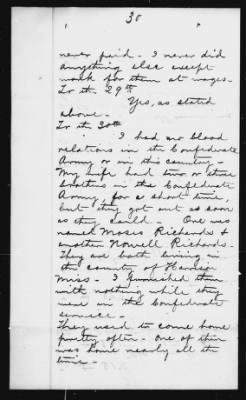 30
never paid - I never did
anything else except
work for them at wages -
To th 29th
Yes, as stated
above -
To th 30th
I had no blood
relations in th Confederate
Army or in this country -
My wife had two or three
brothers in the Confederate
Army, for a short time,
but they got out as soon
as they could - One was
named Moses Richards &
another Nowell Richards -
They are both living in
the county of
Miss - I furnished them
with nothing while they
were in the Confederate
service -
They used to come home
pretty often - One of them
was home nearly all th
time -